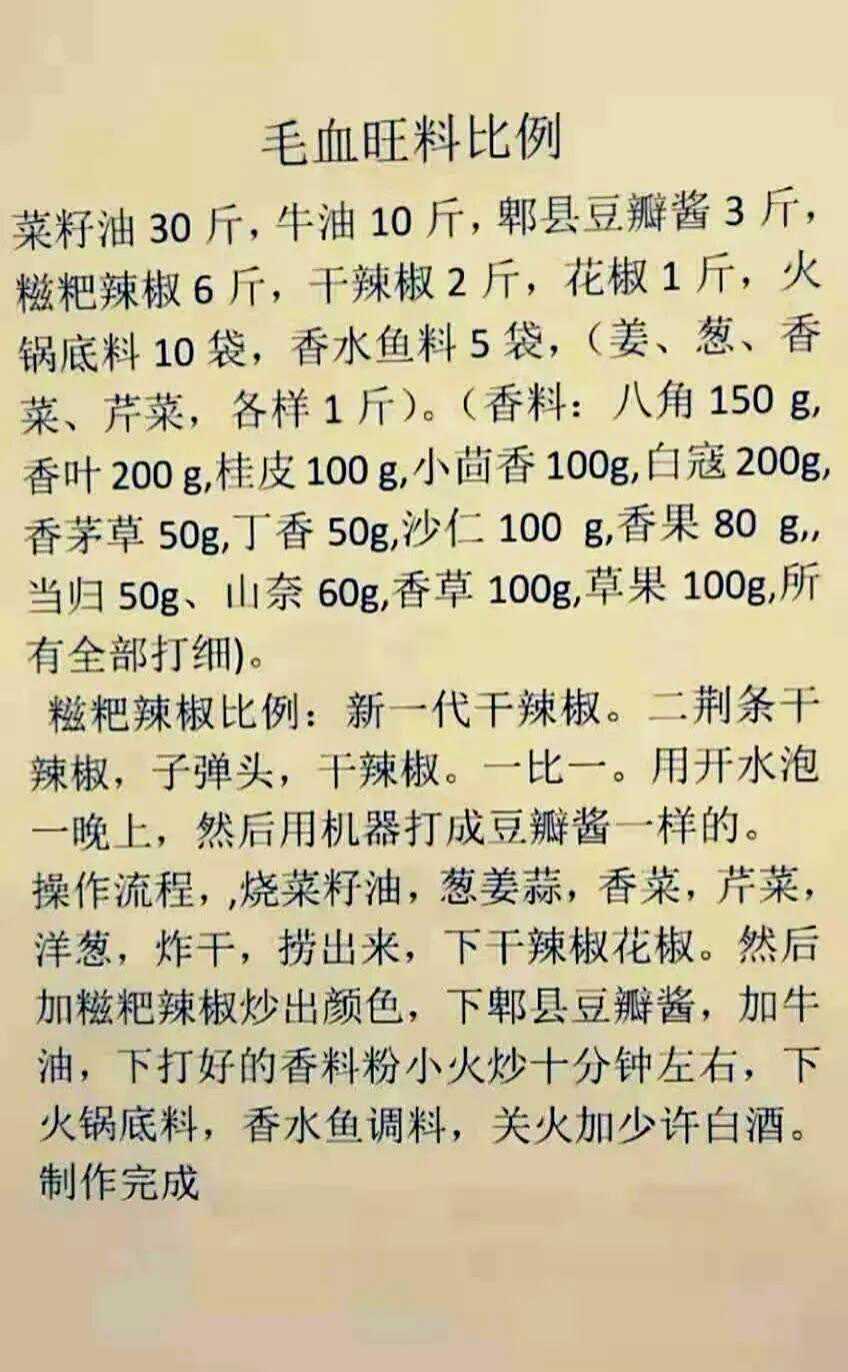 毛血旺料比例
菜籽油 30 斤，牛油 10 斤，郫县豆瓣酱 3 斤，
糍粑辣椒 6 斤，干辣椒 2 斤，花椒 1 斤，火
锅底料 10 袋，香水鱼料 5 袋，（姜、葱、香
菜、芹菜，各样 1 斤）。（香料：八角 150 g,
香叶 200 g,桂皮 100 g,小茴香 100g,白寇 200g,
香茅草 50g,丁香 50g,沙仁 100 g,香果 80 g,,
当归 50g、山奈 60g,香草 100g,草果 100g,所
有全部打细)。
糍粑辣椒比例：新一代干辣椒。二荆条干
辣椒，子弹头，干辣椒。一比一。用开水泡
一晚上，然后用机器打成豆瓣酱一样的。
操作流程，,烧菜籽油，葱姜蒜，香菜，芹菜，
洋葱，炸干，捞出来，下干辣椒花椒。然后
加糍粑辣椒炒出颜色，下郫县豆瓣酱，加牛
油，下打好的香料粉小火炒十分钟左右，下
火锅底料，香水鱼调料，关火加少许白酒。
制作完成